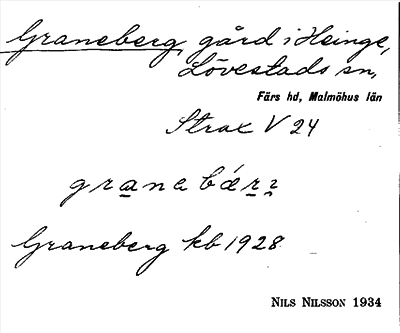 Graneberg, gård i Heinge,
Lövestads sn,
Färs hd, Malmöhus län
Strax V 24
granebǽrꝛ
Graneberg kb 1928
NILS NILSSON 1934